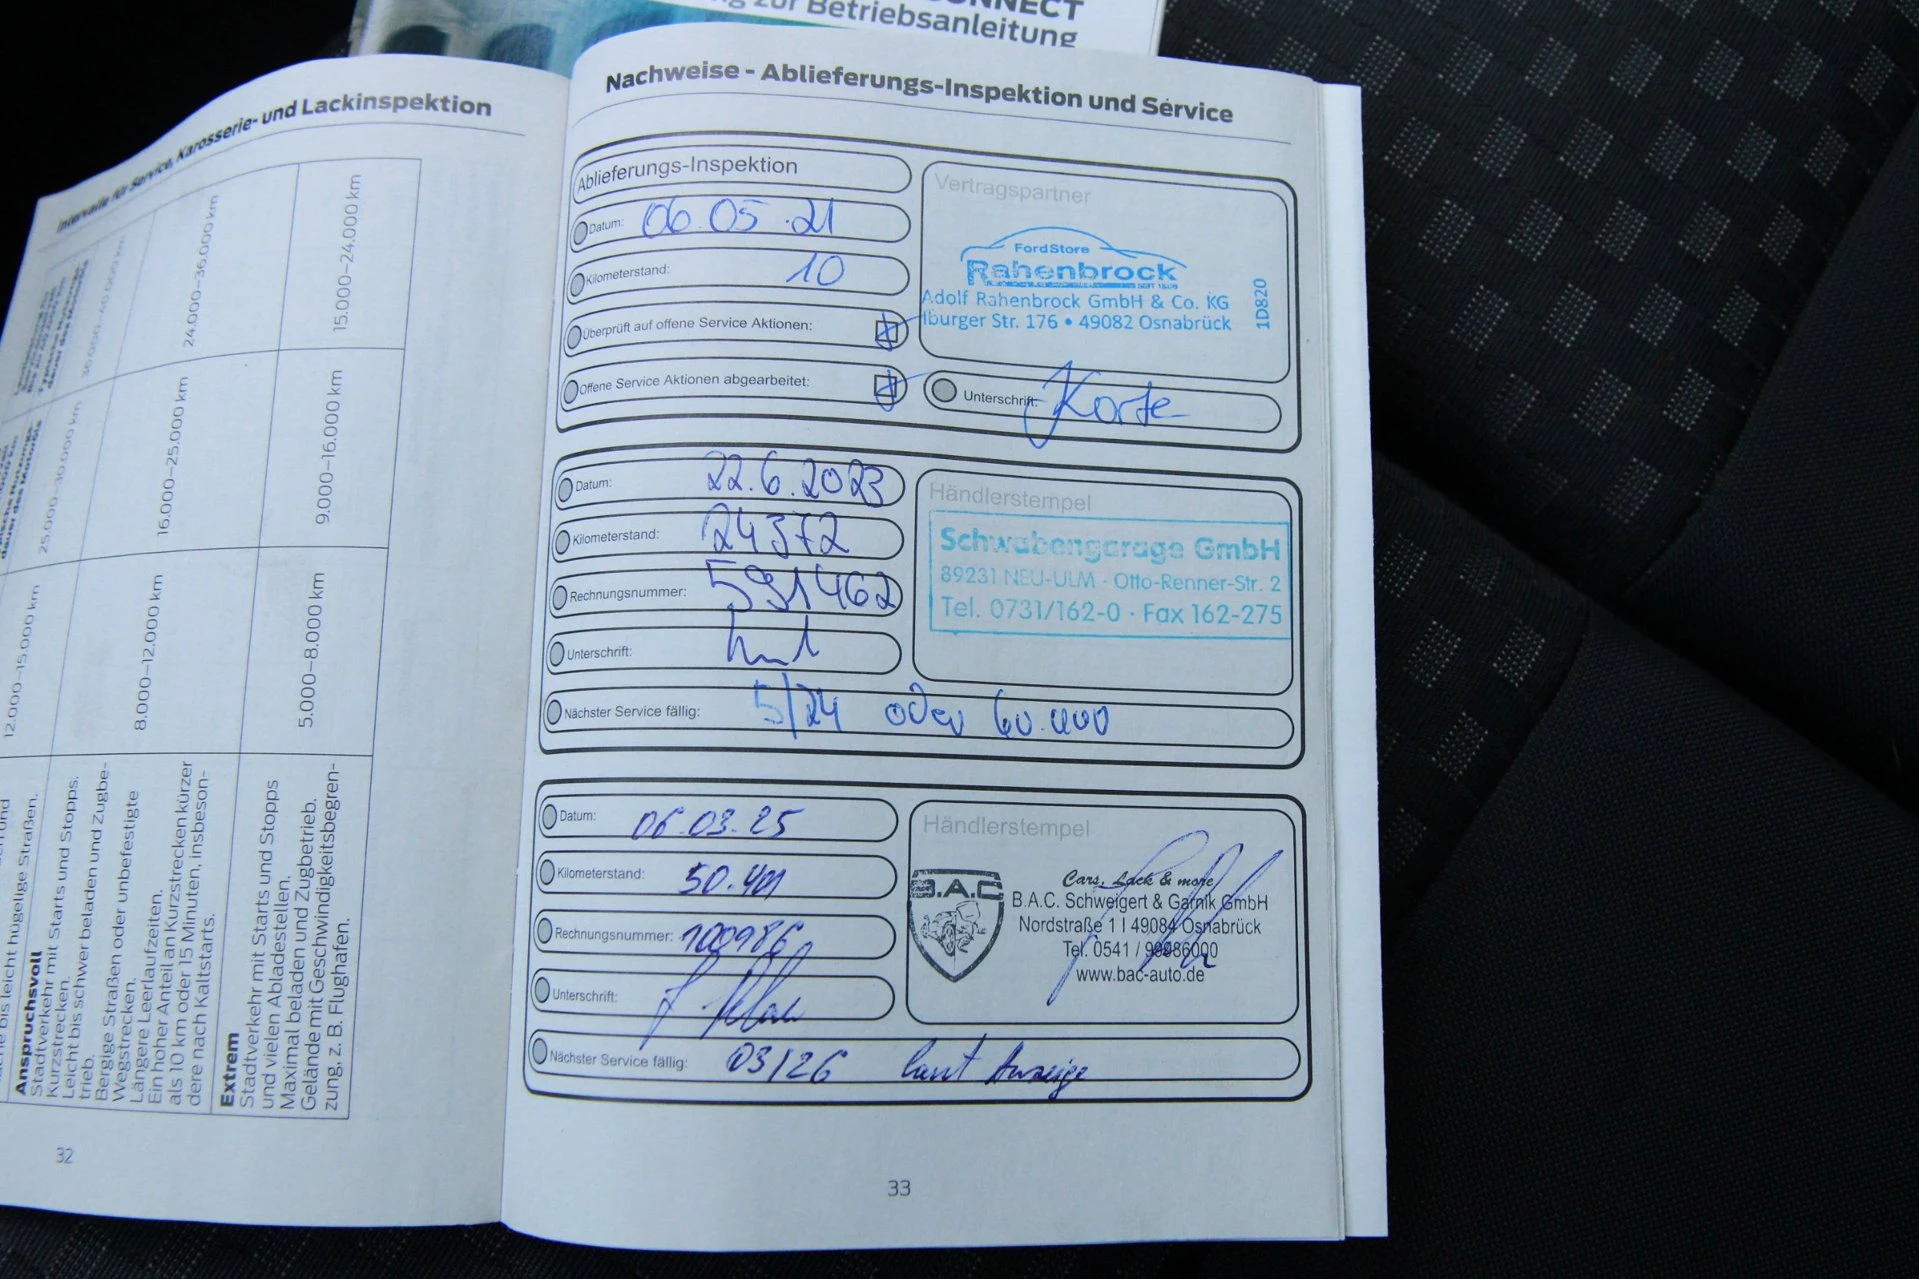 NNECT
zur Betriebsanleitung
Intervalle für Service, Karosserie- und Lackinspektion
24.000–36.000 km
15.000–24.000 km
25.000–30.000 km
16.000–25.000 km
9.000–16.000 km
12.000–15.000 km
8.000–12.000 km
5.000–8.000 km
bis leicht hügelige Straßen.
Anspruchsvoll
Stadtverkehr mit Starts und Stopps.
Kurzstrecken.
Leicht bis schwer beladen und Zugbe-
trieb.
Bergige Straßen oder unbefestigte
Wegstrecken.
Längere Leerlaufzeiten.
Ein hoher Anteil an Kurzstrecken kürzer
als 10 km oder 15 Minuten, insbeson-
dere nach Kaltstarts.
Extrem
Stadtverkehr mit Starts und Stopps
und vielen Abladestellen.
Maximal beladen und Zugbetrieb.
Gelände mit Geschwindigkeitsbegren-
zung, z. B. Flughafen.
32
Nachweise - Ablieferungs-Inspektion und Service
Ablieferungs-Inspektion
Datum: 06.05.21
Kilometerstand: 10
Überprüft auf offene Service Aktionen:
Offene Service Aktionen abgearbeitet:
Vertragspartner
FordStore
Rahenbrock
Adolf Rahenbrock GmbH & Co. KG
Iburger Str. 176 • 49082 Osnabrück
1D820
Unterschrift: Korte
Datum: 22.6.2023
Kilometerstand: 24372
Rechnungsnummer: 591462
Unterschrift:
Nächster Service fällig: 5/24 oder 60.000
Händlerstempel
Schwabengarage GmbH
89231 NEU-ULM · Otto-Renner-Str. 2
Tel. 0731/162-0 · Fax 162-275
Datum: 06.03.25
Kilometerstand: 50.401
Rechnungsnummer: 100986
Unterschrift:
Nächster Service fällig: 03/26 laut Anzeige
Händlerstempel
B.A.C
Cars, Lack & more
B.A.C. Schweigert & Garnik GmbH
Nordstraße 1 I 49084 Osnabrück
Tel. 0541 / 99986000
www.bac-auto.de
33